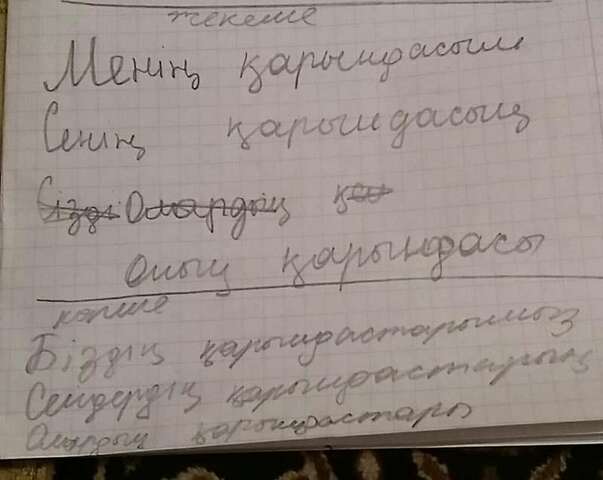 жекеше
Менің қарындасым
Сенің қарындасың
Сізді Олардың қа
Оның қарындасы
көпше
Біздің қарындастарымыз
Сендердің қарындастарың
Олардың қарындастары